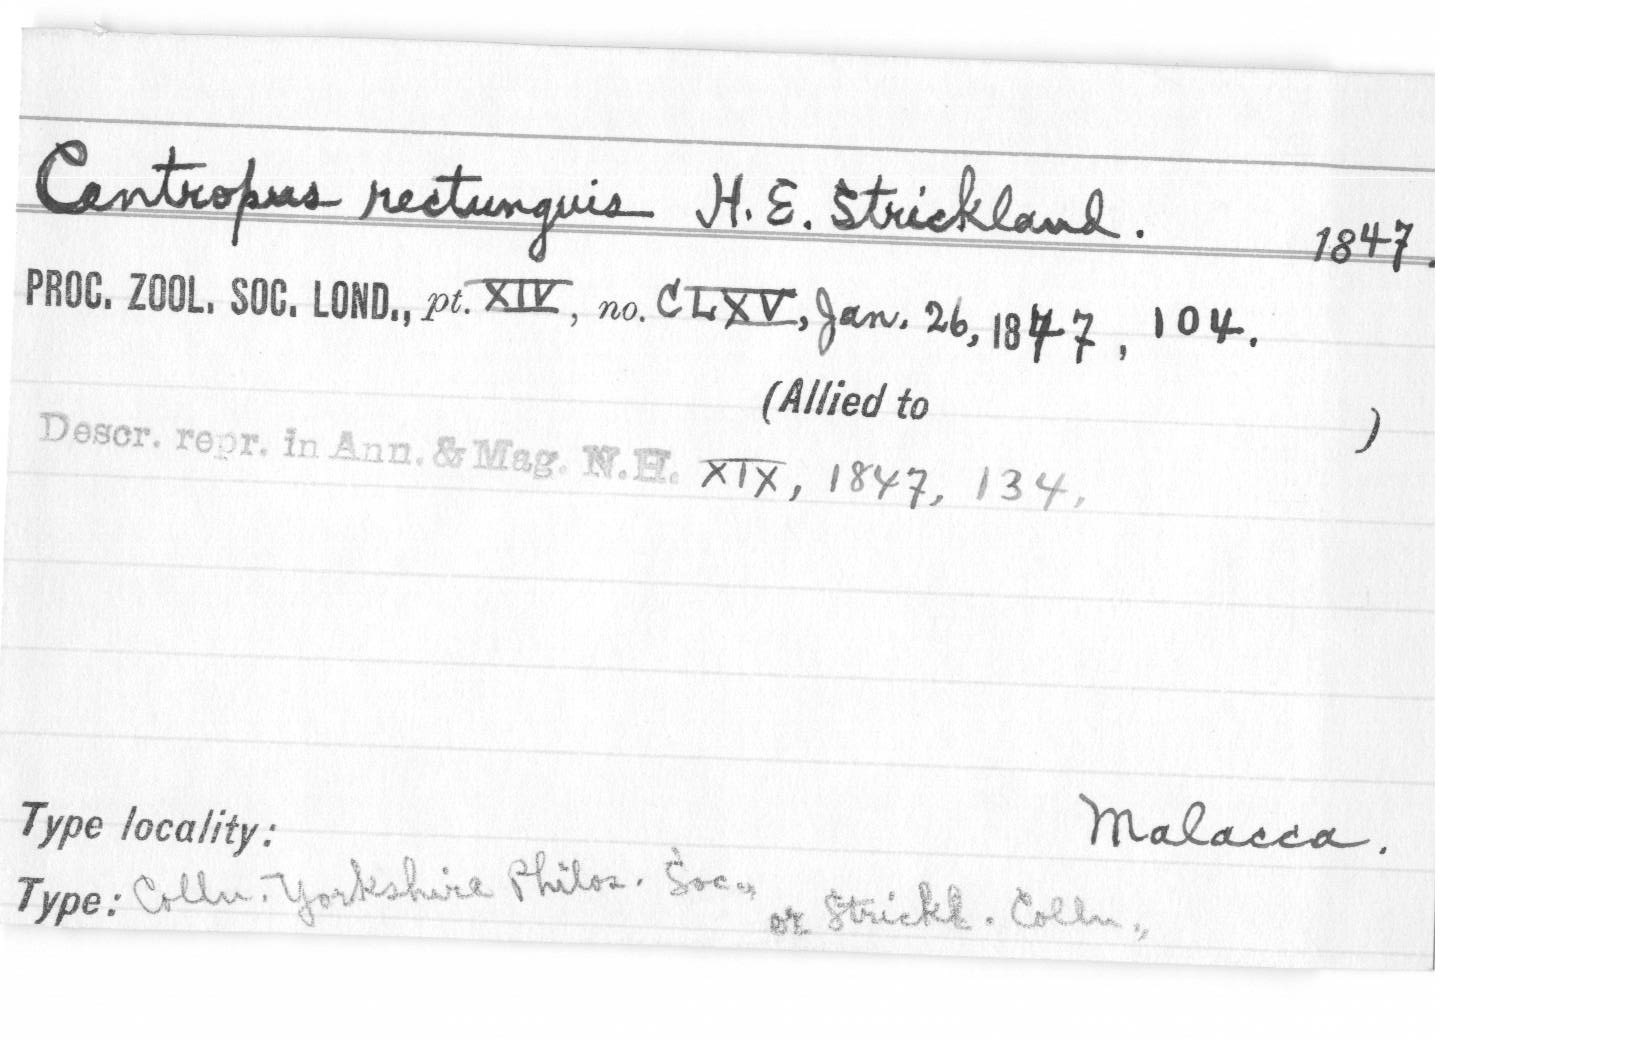 Centropus rectunguis H. E. Strickland. 1847.
PROC. ZOOL. SOC. LOND., pt. XIV, no. CLXV, Jan. 26, 1847, 104.
(Allied to )
Descr. repr. in Ann. & Mag. N.H. XIX, 1847, 134,
Type locality: Malacca.
Type: Colln. Yorkshire Philos. Soc.,
or Strickl. Colln.,